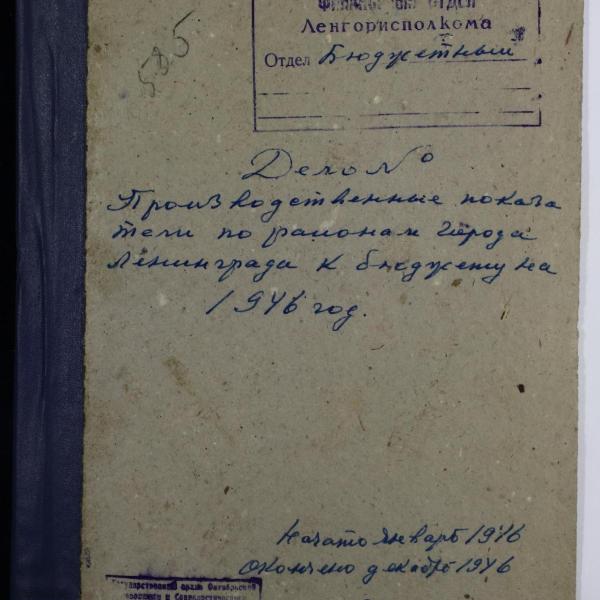 585
Финансовый отдел
Ленгорисполкома
Отдел Бюджетный
Дело №
Производственные показа
тели по районам города
Ленинграда к бюджету на
1946 год.
Начато январь 1946
Окончено декабрь 1946
Государственный архив Октябрьской
революции и Социалистического